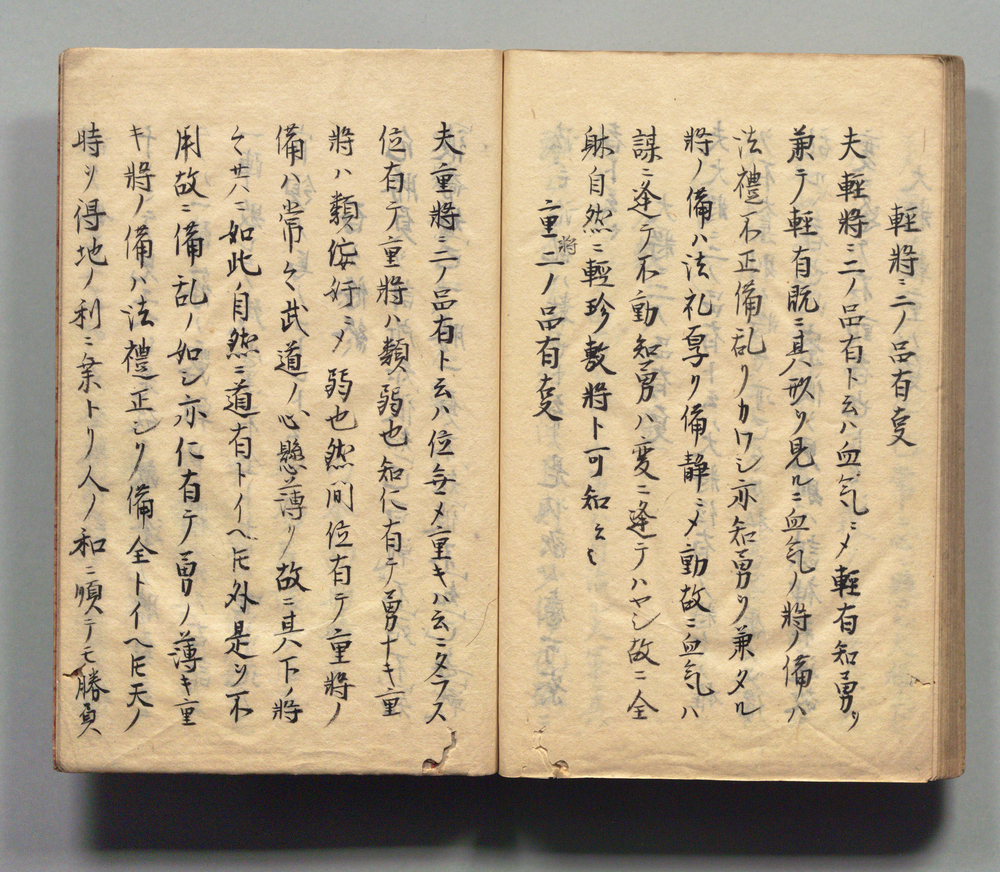 輕將ニ二ノ品有夏
夫輕將ニ二ノ品有ト云ハ血気ニメ輕有知勇ヲ
兼テ輕有既ニ其八形ヲ見ルニ血気ノ將ノ備ハ
法禮不正備乱リカワシ亦知勇ヲ兼タル
將ノ備ハ法礼厚リ備静ニメ動故ニ血気ハ
謀ニ逢テ不動知勇ハ変ニ逢テハヤシ故ニ全
躰自然ニ輕珍敷將ト可知云々
重將二ノ品有夏
夫重將ニ二ノ品有ト云ハ位無メ重キハ云ニタラス
位有テ重將ハ類弱也知仁有テ勇ナキ重
將ハ類侫奸ニメ弱也然間位有テ重將ノ
備ハ常々武道ノ心懸薄リ故ニ其八下ノ將
々廿八ニ如此自然ニ道有トイヘ圧外是ヲ不
用故ニ備乱ノ如シ亦仁有テ勇ノ薄キ重
キ將ノ備ハ法禮正シリ備全トイヘ圧天ノ
時ヲ得地ノ利ニ乗トリ人ノ和ニ順テモ勝負